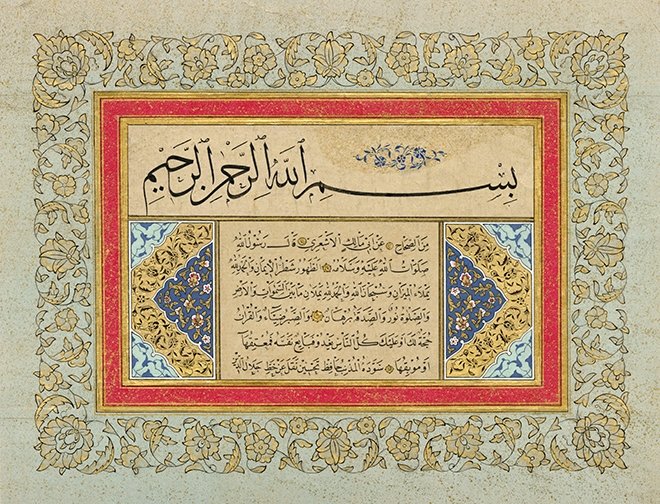 بِسْمِ اللهِ الرَّحْمنِ الرَّحِيمِ
من الصحاح عن ابى مالك الاشعرى قال رسول الله
صلوات الله عليه وسلامه الطهور شطر الايمان والحمد لله
تملاء الميزان وسبحان الله والحمد لله تملان ما بين السموات والارض
والصلوة نور والصدقة برهان والصبر ضياء والقرآن
حجة لك او عليك كل الناس يغدو فبايع نفسه فمعتقها
او موبقها سوده المذنب حافظ تحسين نقلا عن خط